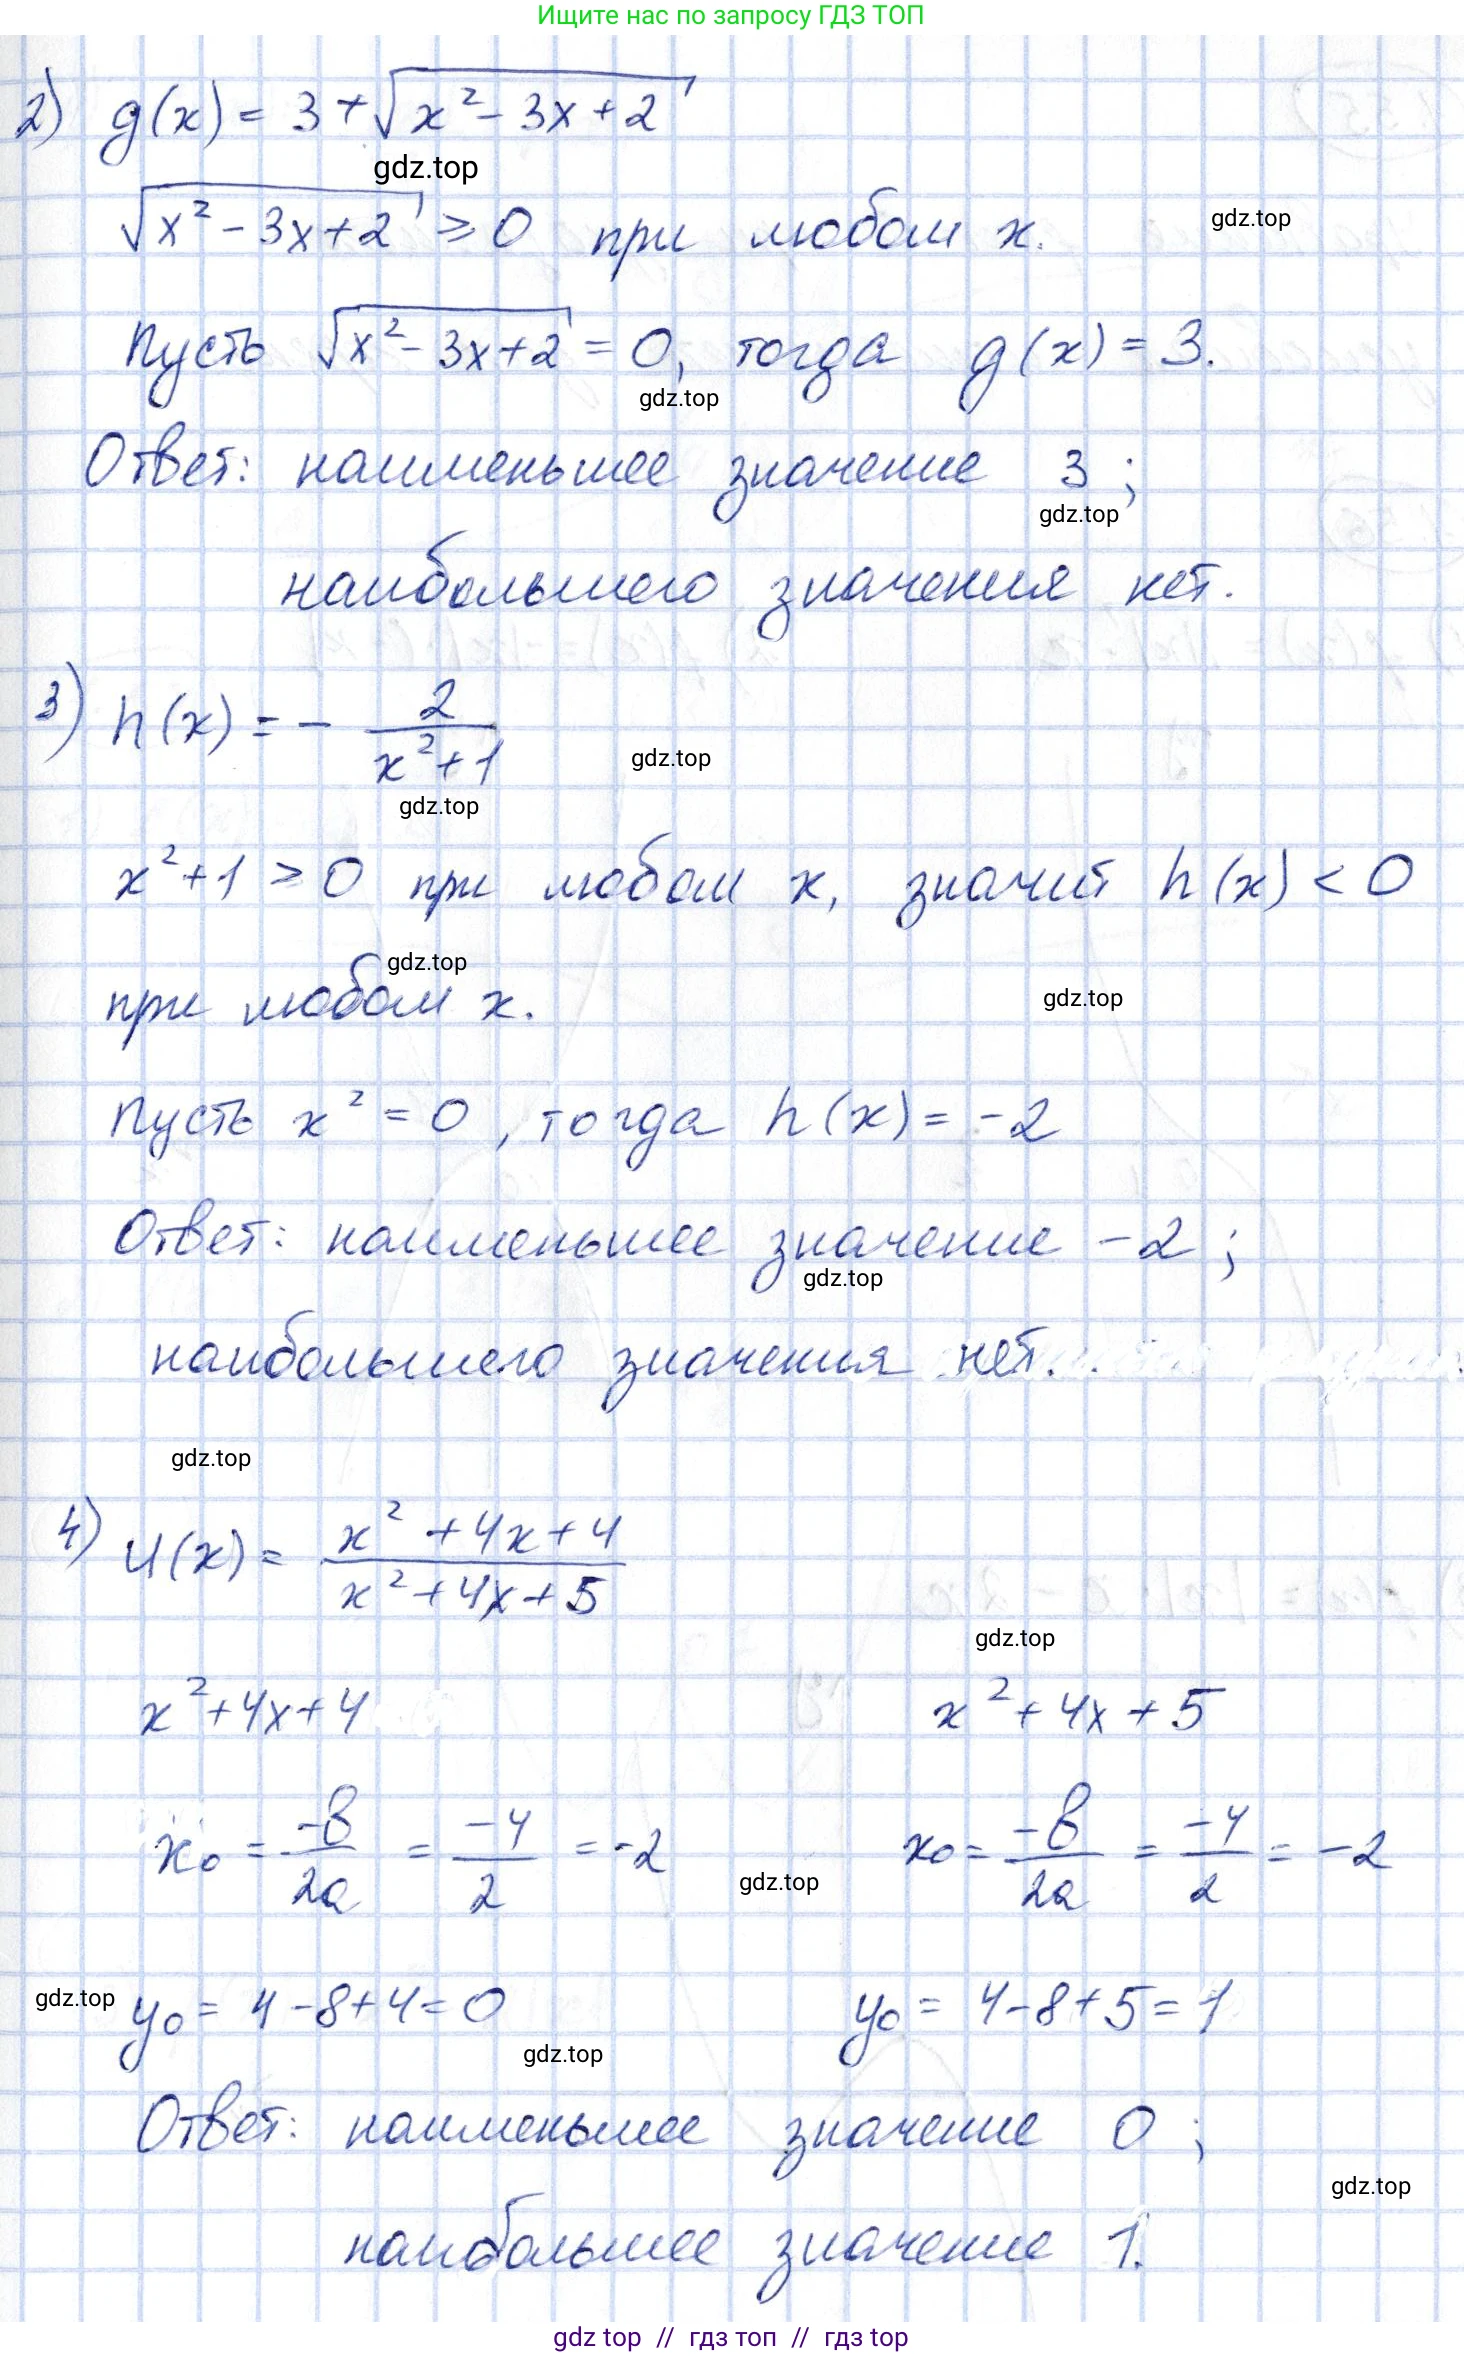 Ищите нас по запросу ГДЗ ТОП
2) g(x) = 3 + √(x² - 3x + 2)
gdz.top
√(x² - 3x + 2) ≥ 0 при любом x.
gdz.top
Пусть √(x² - 3x + 2) = 0, тогда g(x) = 3.
gdz.top
Ответ: наименьшее значение 3;
gdz.top
наибольшего значения нет.
3) h(x) = - 2/(x² + 1)
gdz.top
gdz.top
x² + 1 ≥ 0 при любом x, значит h(x) < 0
gdz.top
при любом x.
gdz.top
Пусть x² = 0, тогда h(x) = -2
Ответ: наименьшее значение -2;
gdz.top
наибольшего значения нет.
gdz.top
4) U(x) = (x² + 4x + 4)/(x² + 4x + 5)
gdz.top
x² + 4x + 4 x² + 4x + 5
x₀ = -b/2a = -4/2 = -2 x₀ = -b/2a = -4/2 = -2
gdz.top
gdz.top
y₀ = 4 - 8 + 4 = 0 y₀ = 4 - 8 + 5 = 1
gdz.top
Ответ: наименьшее значение 0;
gdz.top
наибольшее значение 1.
gdz top // гдз топ // гдз top